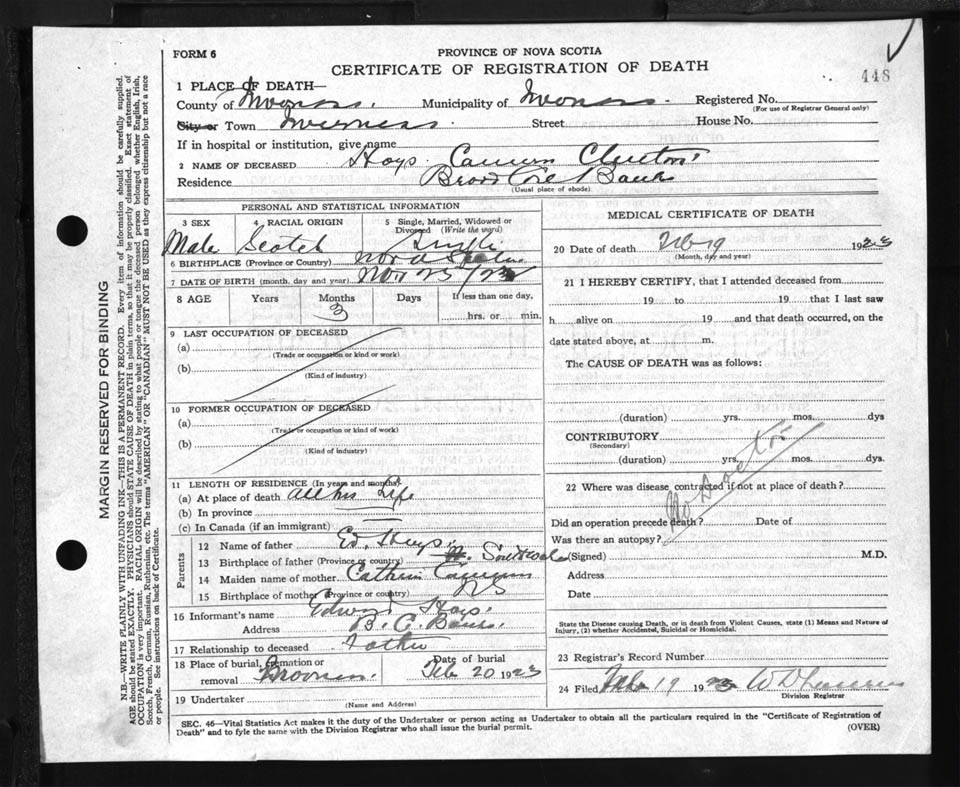 FORM 6
PROVINCE OF NOVA SCOTIA
CERTIFICATE OF REGISTRATION OF DEATH
448
1 PLACE OF DEATH—
County of Inverness. Municipality of Inverness. Registered No.
(For use of Registrar General only)
City or Town Inverness. Street House No.
If in hospital or institution, give name
2 NAME OF DECEASED Hays Clinton
Residence Broad Cove Banks
(Usual place of abode)
PERSONAL AND STATISTICAL INFORMATION
3 SEX 4 RACIAL ORIGIN 5 Single, Married, Widowed or Divorced (Write the word)
Male Scotch Single
6 BIRTHPLACE (Province or Country) Nova Scotia
7 DATE OF BIRTH (month, day and year) Nov 25/22
8 AGE Years Months Days If less than one day,
3 hrs. or min.
9 LAST OCCUPATION OF DECEASED
(a)
(Trade or occupation or kind or work)
(b)
(Kind of industry)
10 FORMER OCCUPATION OF DECEASED
(a)
(Trade or occupation or kind of work)
(b)
(Kind of industry)
11 LENGTH OF RESIDENCE (In years and months).
(a) At place of death All his Life
(b) In province
(c) In Canada (if an immigrant)
Parents
12 Name of father Ed. Hays.
13 Birthplace of father (Province or country)
14 Maiden name of mother
15 Birthplace of mother (Province or country) NS
16 Informant's name Edward Hays.
Address B. C. Banks.
17 Relationship to deceased Father
18 Place of burial, cremation or removal Inverness. Date of burial Feb 20 1923
19 Undertaker
(Name and Address)
MEDICAL CERTIFICATE OF DEATH
20 Date of death Feb 19 1923
(Month, day and year)
21 I HEREBY CERTIFY, that I attended deceased from
19 to 19 that I last saw
h alive on 19 and that death occurred, on the
date stated above, at m.
The CAUSE OF DEATH was as follows:
(duration) yrs. mos. dys
CONTRIBUTORY
(Secondary)
(duration) yrs. mos. dys.
No Doctor
22 Where was disease contracted if not at place of death?
Did an operation precede death? Date of
Was there an autopsy?
(Signed) M.D.
Address
Date
State the Disease causing Death, or in death from Violent Causes, state (1) Means and Nature of Injury, (2) whether Accidental, Suicidal or Homicidal.
23 Registrar's Record Number
24 Filed 19 19
Division Registrar
SEC. 46—Vital Statistics Act makes it the duty of the Undertaker or person acting as Undertaker to obtain all the particulars required in the "Certificate of Registration of
Death" and to fyle the same with the Division Registrar who shall issue the burial permit.
(OVER)
MARGIN RESERVED FOR BINDING
N.B.—WRITE PLAINLY WITH UNFADING INK—THIS IS A PERMANENT RECORD. Every item of information should be carefully supplied.
AGE should be stated EXACTLY. PHYSICIANS should STATE CAUSE OF DEATH in plain terms, so that it may be properly classified. Exact statement of
OCCUPATION is very important. RACIAL ORIGIN will be described by stating to what people or tongue the deceased person belonged whether English, Irish,
Scotch, French, German, Russian, Ruthenian, etc. The terms "AMERICAN" OR "CANADIAN" MUST NOT BE USED as they express citizenship but not a race
or people. See instructions on back of Certificate.